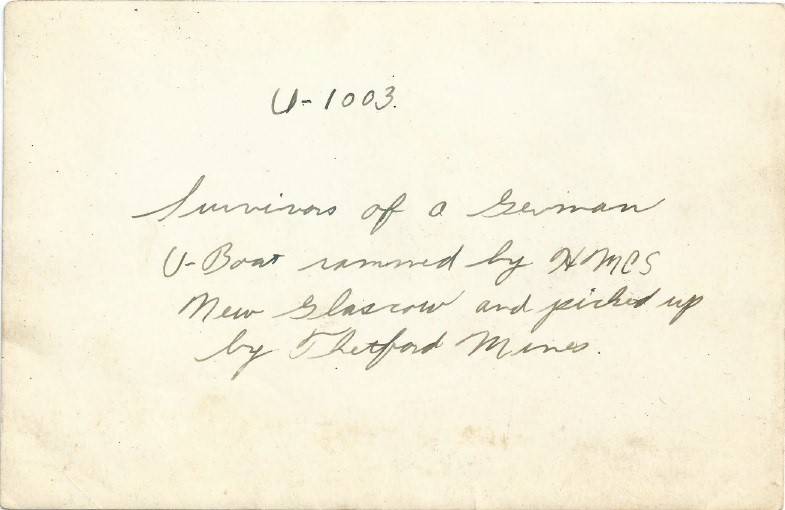 U-1003.
Survivors of a German
U-Boat rammed by HMCS
New Glascow and picked up
by Thetford Mines.